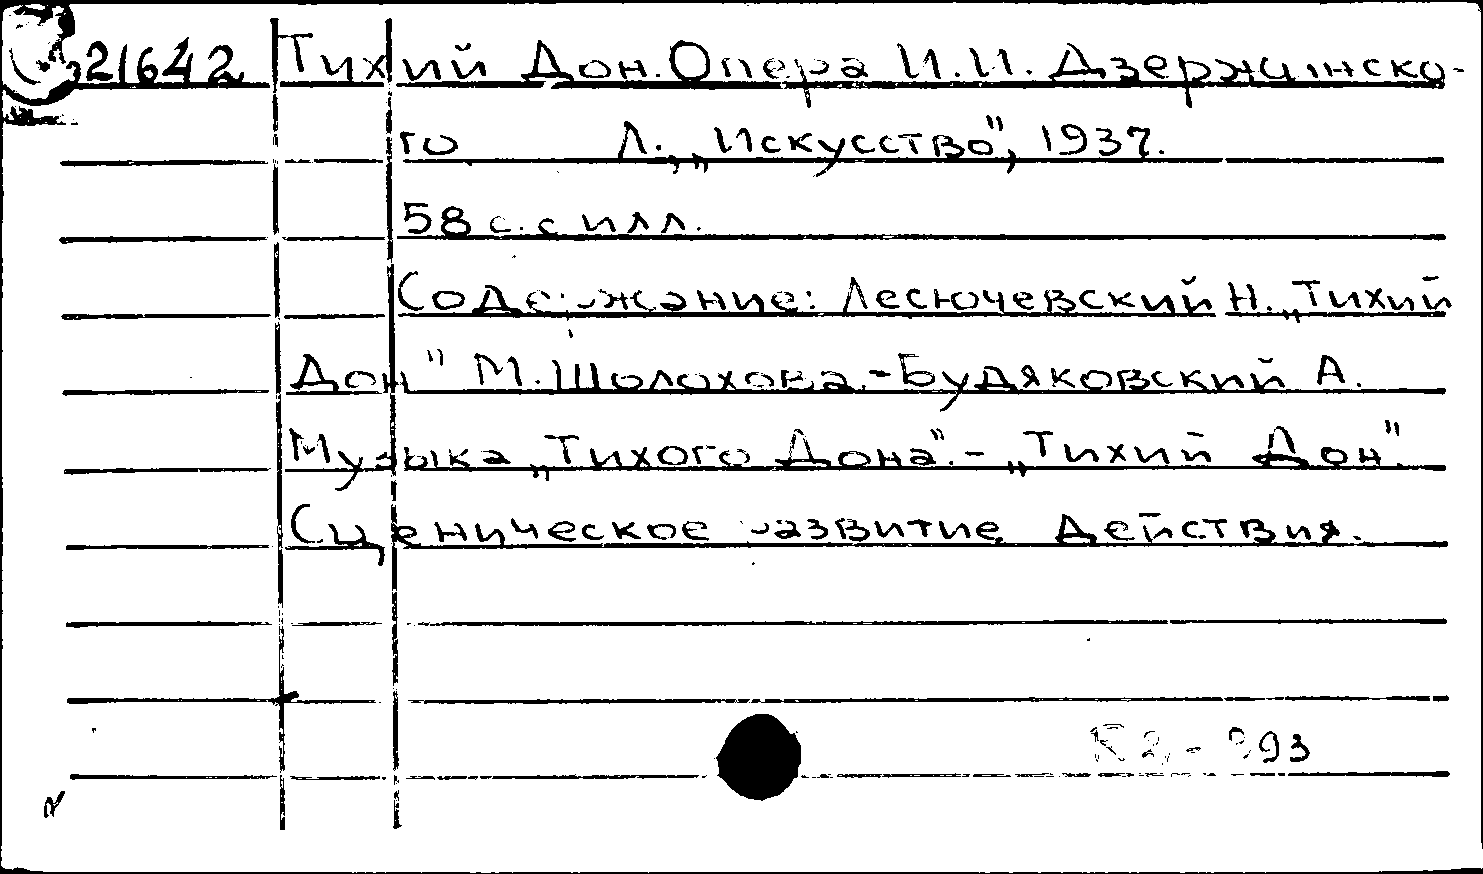 21642 Тихий Дон. Опера И.И. Дзержинско-
го Л., „Искусство", 1937.
58 с. с илл.
Содержание: Лесючевский Н. „Тихий
Дон" М. Шолохова. - Будяковский А.
Музыка „Тихого Дона". - „Тихий Дон".
Сценическое развитие действия.